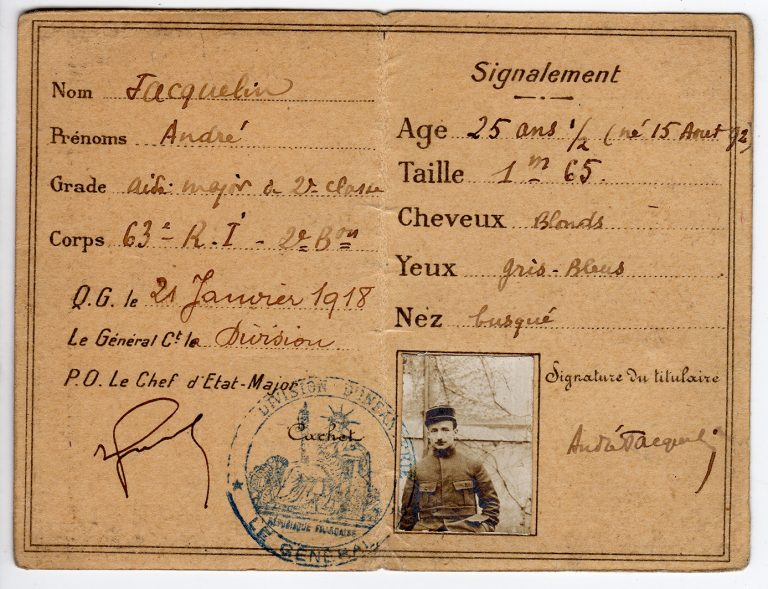 Nom Jacquelin
Prénoms André
Grade aide-major de 2e classe
Corps 63e R.I - 2e Bon
Q.G. le 21 Janvier 1918
Le Général Ct la Division
P.O. Le Chef d'Etat-Major
Cachet
DIVISION D'INFAN
RÉPUBLIQUE FRANÇAISE
LE GÉNÉRAL
Signalement
Age 25 ans 1/2 (né 15 Aout 92)
Taille 1m 65.
Cheveux Blonds
Yeux gris-Bleus
Nez busqué
Signature du titulaire
André Jacquelin